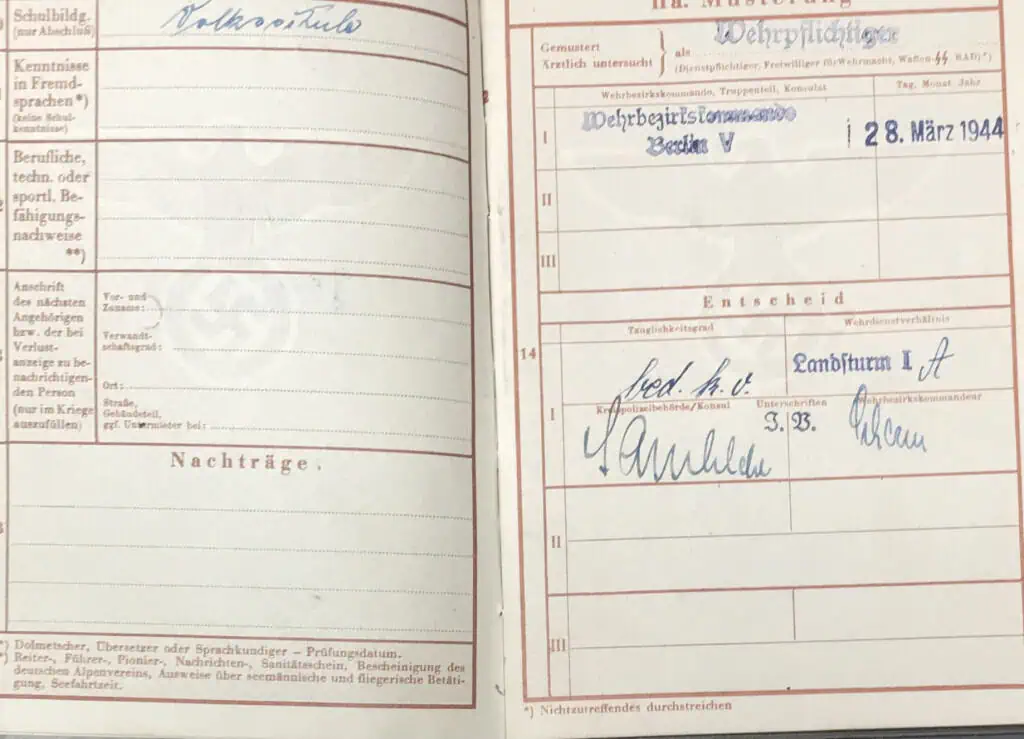 Schulbildg.
(nur Abschluß)
Volksschule
Kenntnisse
in Fremd-
sprachen*)
(keine Schul-
kenntnisse)
Berufliche,
techn. oder
sportl. Be-
fähigungs-
nachweise
**)
Anschrift
des nächsten
Angehörigen
bzw. der bei
Verlust-
anzeige zu be-
nachrichtigen-
den Person
(nur im Kriege
auszufüllen)
Vor- und
Zuname:
Verwandt-
schaftsgrad:
Ort:
Straße,
Gebäudeteil,
ggf. Untermieter bei:
Nachträge.
*) Dolmetscher, Übersetzer oder Sprachkundiger – Prüfungsdatum.
*) Reiter-, Führer-, Pionier-, Nachrichten-, Sanitätsschein, Bescheinigung des
deutschen Alpenvereins, Ausweise über seemännische und fliegerische Betäti-
gung, Seefahrtzeit.
IIa. Musterung
Gemustert
Ärztlich untersucht
als
Wehrpflichtiger
(Dienstpflichtiger, Freiwilliger für Wehrmacht, Waffen-SS RAD)*)
Wehrbezirkskommando, Truppenteil, Konsulat
Tag, Monat, Jahr
I
Wehrbezirkskommando
Berlin V
28. März 1944
II
III
Entscheid
14
Tauglichkeitsgrad
Wehrdienstverhältnis
I
bed. k. v.
Landsturm I A
Kreispolizeibehörde/Konsul
Unterschriften
Wehrbezirkskommandeur
I. V.
II
III
*) Nichtzutreffendes durchstreichen